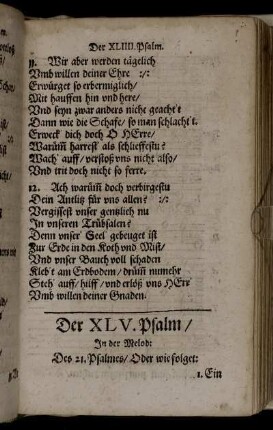 Der XLIIII. Psalm.
11. Wir aber werden tägelich
Vmb willen deiner Ehre :/:
Erwürget so erbermiglich/
Mit hauffen hin vnd here/
Vnd seyn zwar anders nicht geacht't
Dann wie die Schafe/ so man schlacht't.
Erweck dich doch O HErre/
Warumb harrest' als schlieffestu?
Wach' auff/ verstoß vns nicht also/
Vnd trit doch nicht so ferre.
12. Ach warumb doch verbirgestu
Dein Antlitz für vns allen? :/:
Vergissest vnser gentzlich nu
In vnseren Trübsalen?
Denn vnser Seel' gebeuget ist
Zur Erde in den Koth vnd Mist/
Vnd vnser Bauch voll schaden
Kleb't am Erdbodem/ drumb numehr
Steh' auff/ hilff/ vnd erlöß vns HErr
Vmb willen deiner Gnaden.
Der XLV. Psalm/
In der Melod:
Des 21. Psalmes/ Oder wie folget:
1. Ein